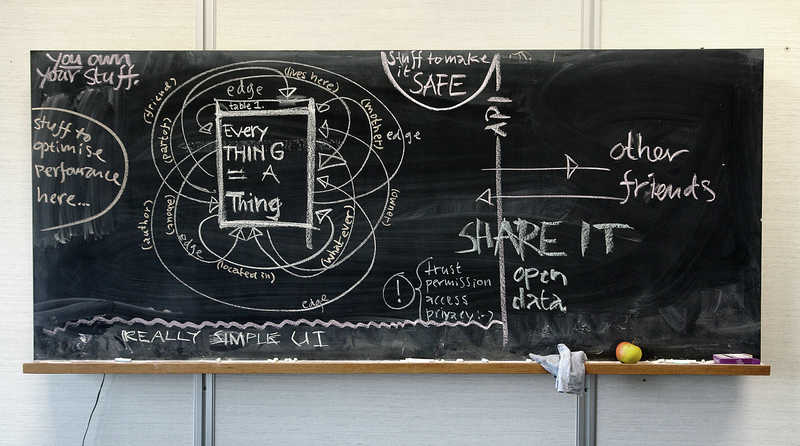 You own
your stuff.
stuff to
optimise
perfomance
here...
edge
(lives here)
(mother)
edge
(partof)
(author)
edge
(located in)
(what ever)
(owner)
edge
table 1.
Every
THING
= A
Thing
stuff to make
it SAFE
API
other
friends
SHARE IT
open
data
!
trust
permission
access
privacy :-)
REALLY SIMPLE UI